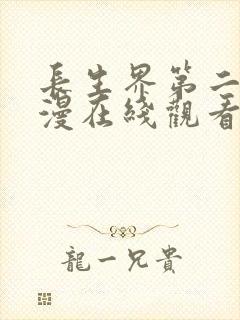 長生界第二
漫在綫觀看
龍一兄貴